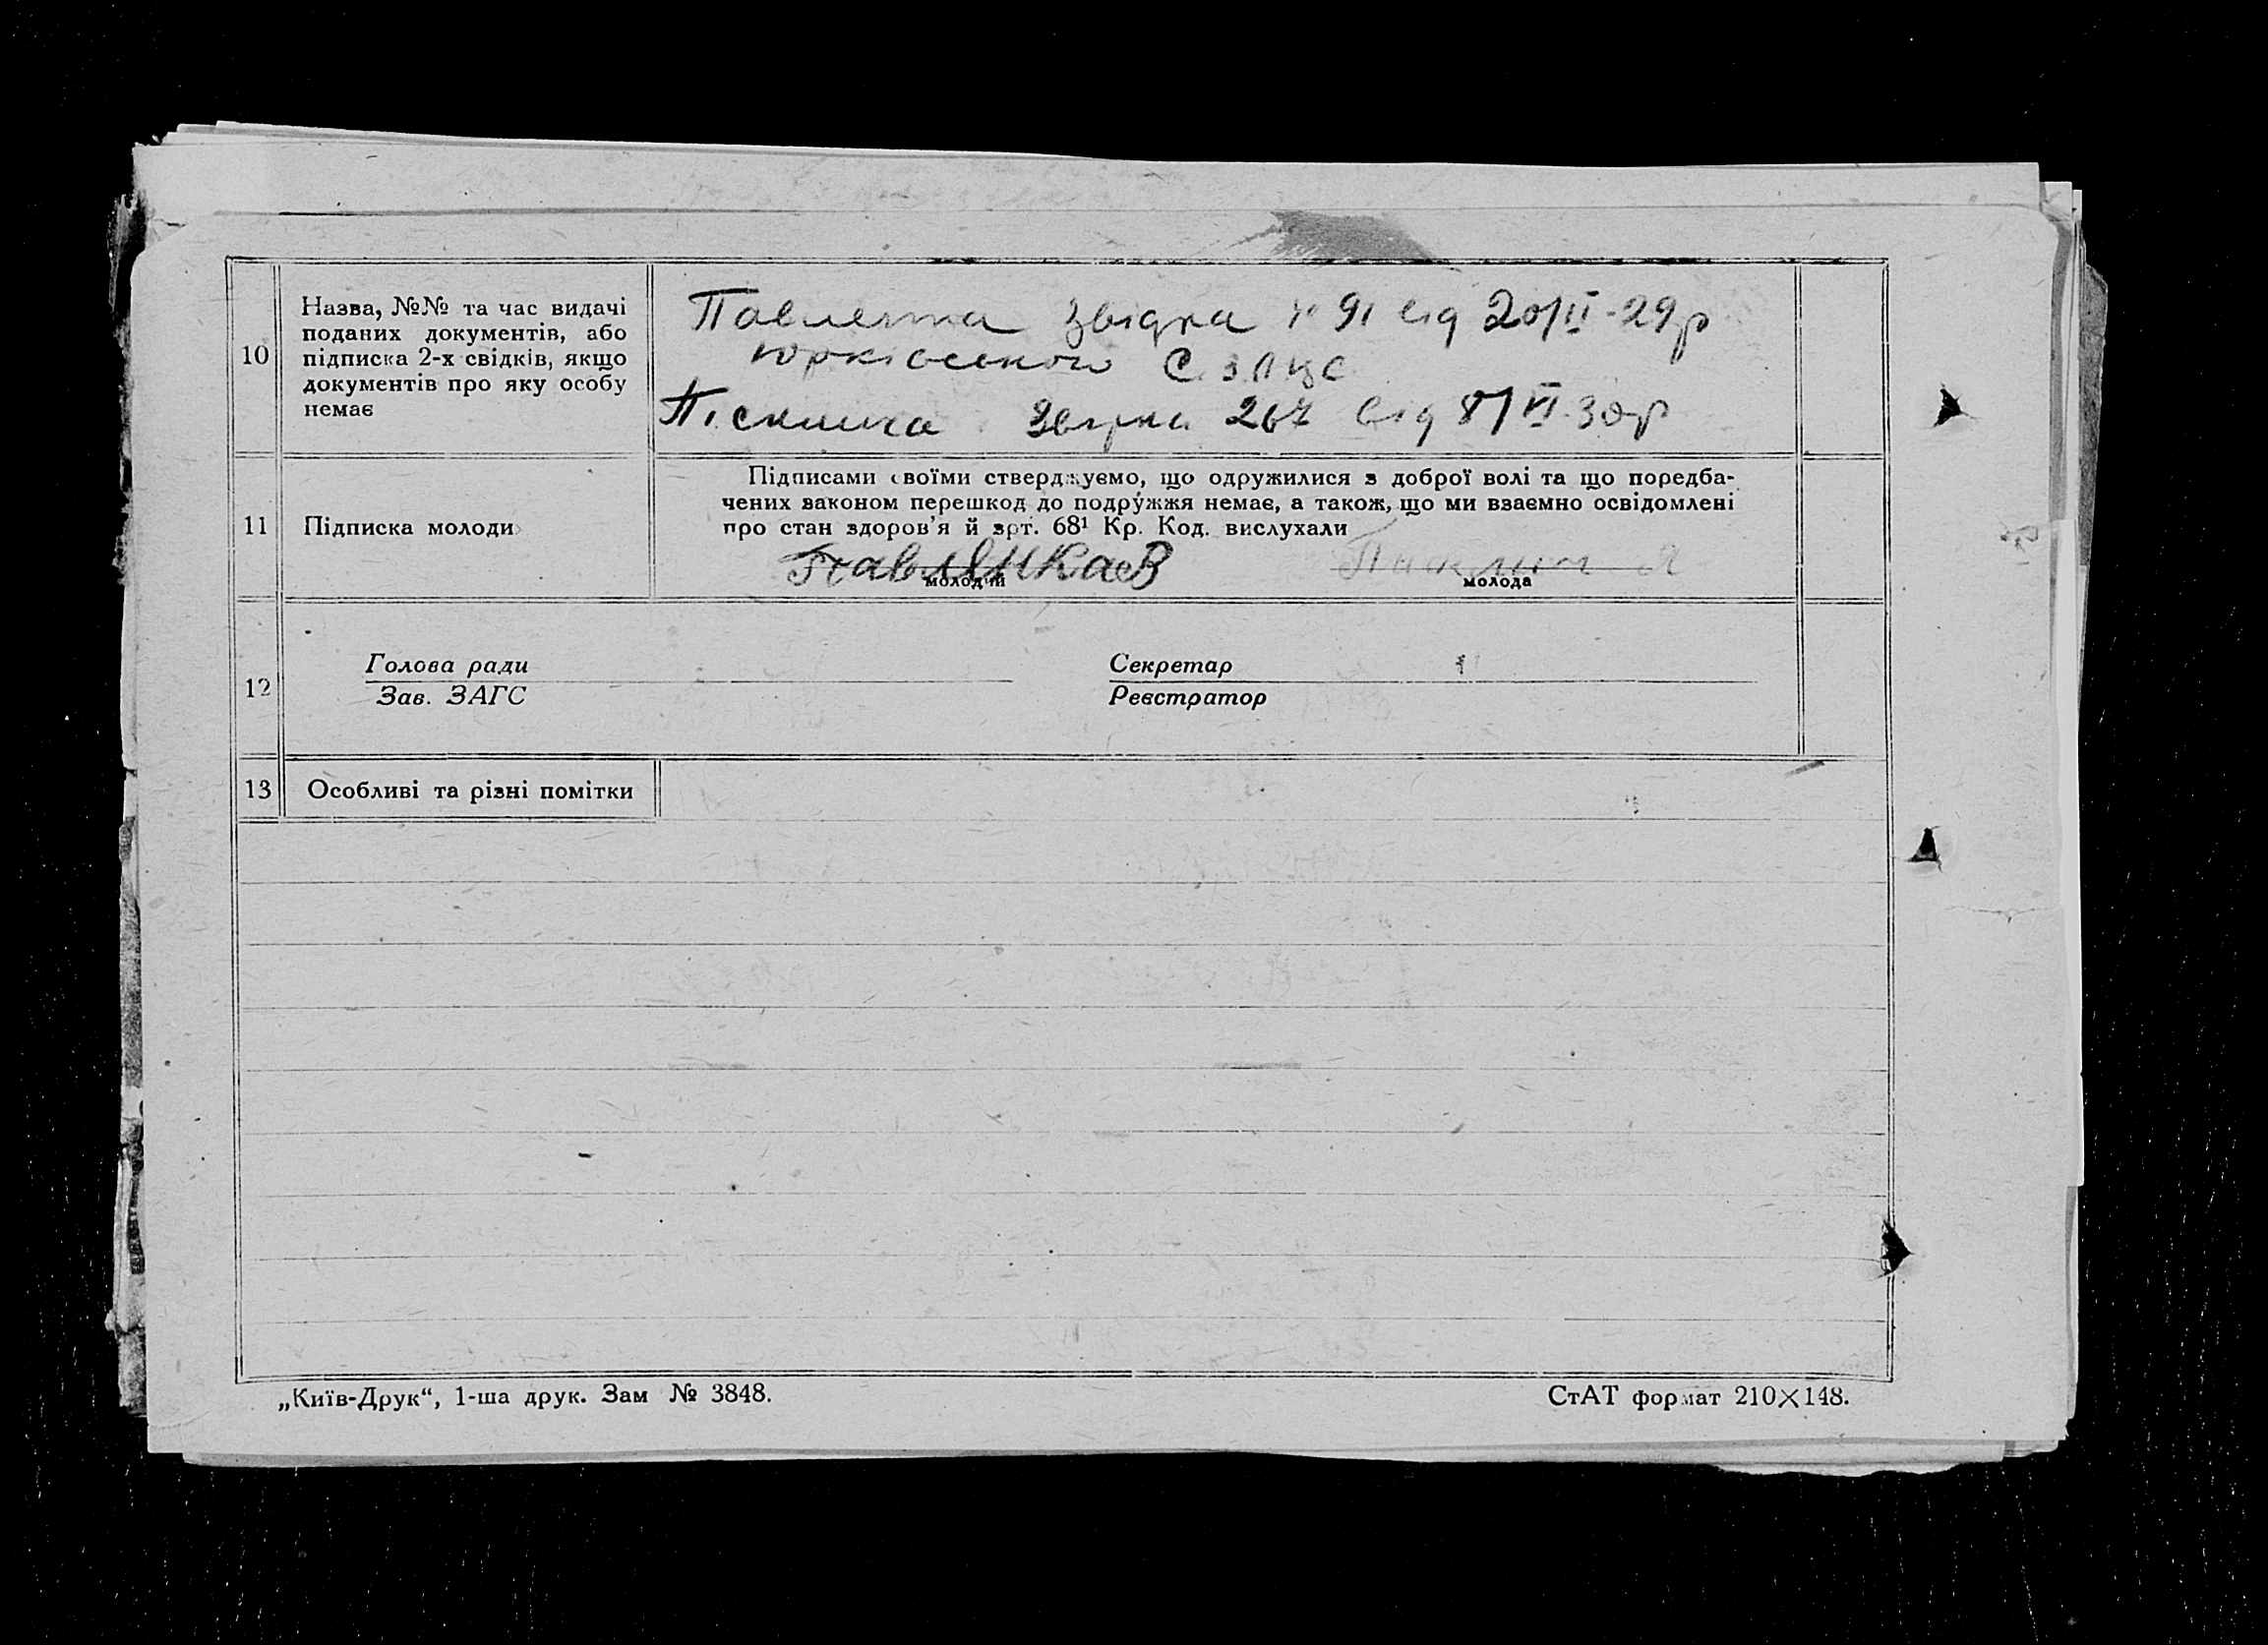 10
Назва, №№ та час видачі
поданих документів, або
підписка 2-х свідків, якщо
документів про яку особу
немає
звідка № 91 від 20/II-29р
267 від 8/VI 30р
11
Підписка молоди
Підписами своїми стверджуємо, що одружилися з доброї волі та що поредба-
чених законом перешкод до подружжя немає, а також, що ми взаємно освідомлені
про стан здоров'я й арт. 68¹ Кр. Код. вислухали
молодий
молода
12
Голова ради
Зав. ЗАГС
Секретар
Реєстратор
13
Особливі та різні помітки
„Київ-Друк“, 1-ша друк. Зам № 3848.
СтАТ формат 210×148.